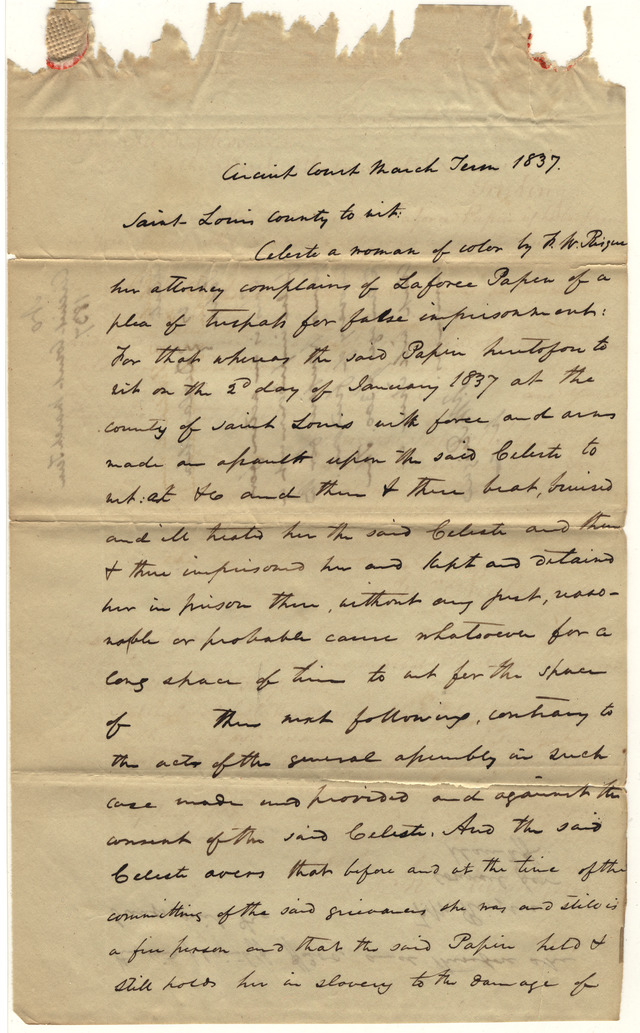 Circuit Court March Term 1837.
Saint Louis County to wit:
Celeste a woman of color by F. W. Risque
her attorney complains of Laforce Papin of a
plea of trespass for false imprisonment:
For that whereas the said Papin heretofore to
wit on the 2d day of January 1837 at the
county of Saint Louis with force and arms
made an assault upon the said Celeste to
wit: at &c and then & there beat, bruised
and ill treated her the said Celeste and then
& there imprisoned her and kept and detained
her in prison there, without any just, reaso-
nable or probable cause whatsoever for a
long space of time to wit for the space
of then next following, contrary to
the acts of the general assembly in such
case made and provided and against the
consent of the said Celeste. And the said
Celeste avers that before and at the time of the
committing of the said grievances she was and still is
a free person and that the said Papin held &
still holds her in slavery to the damage of